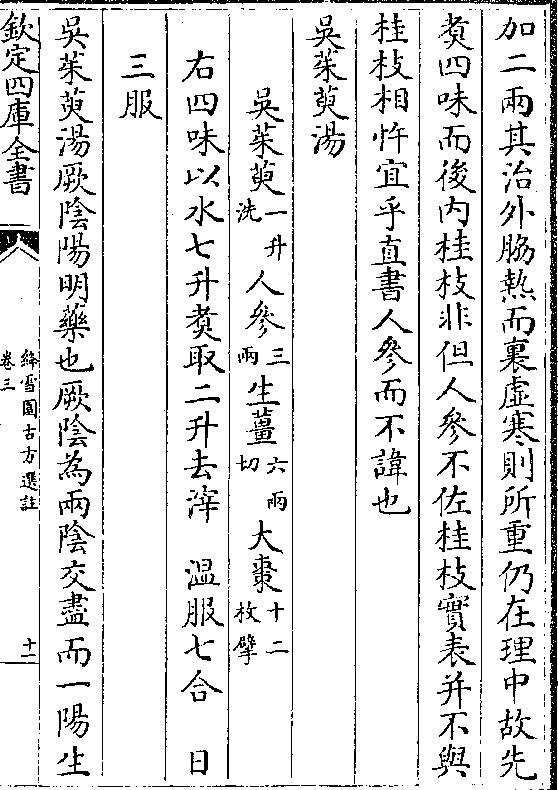 加二兩其治外脇熱而裏虛寒則所重仍在理中故先
煑四味而後內桂枝非但人參不佐桂枝實表并不與
桂枝相忤宜乎直書人參而不諱也
吳茱萸湯
吳茱萸一升洗人參三兩生薑六兩切大棗十二枚擘
右四味以水七升煑取二升去滓 温服七合 日
三服
吳茱萸湯厥陰陽明藥也厥陰為兩陰交盡而一陽生
欽定四庫全書
絳雪園古方選註
卷三
十二